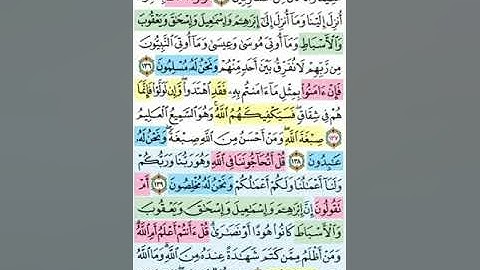 أُنزِلَ إِلَيْنَا وَمَا أُنزِلَ إِلَىٰ إِبْرَٰهِـۧمَ وَإِسْمَٰعِيلَ وَإِسْحَٰقَ وَيَعْقُوبَ
وَالْأَسْبَاطِ وَمَا أُوتِيَ مُوسَىٰ وَعِيسَىٰ وَمَا أُوتِيَ النَّبِيُّونَ
مِن رَّبِّهِمْ لَا نُفَرِّقُ بَيْنَ أَحَدٍ مِّنْهُمْ وَنَحْنُ لَهُ مُسْلِمُونَ ١٣٦
فَإِنْ ءَامَنُوا بِمِثْلِ مَا ءَامَنتُم بِهِ فَقَدِ اهْتَدَوا وَّإِن تَوَلَّوْا فَإِنَّمَا
هُمْ فِي شِقَاقٍ فَسَيَكْفِيكَهُمُ اللَّهُ وَهُوَ السَّمِيعُ الْعَلِيمُ
١٣٧ صِبْغَةَ اللَّهِ وَمَنْ أَحْسَنُ مِنَ اللَّهِ صِبْغَةً وَنَحْنُ لَهُ
عَٰبِدُونَ ١٣٨ قُلْ أَتُحَاجُّونَنَا فِي اللَّهِ وَهُوَ رَبُّنَا وَرَبُّكُمْ
وَلَنَا أَعْمَٰلُنَا وَلَكُمْ أَعْمَٰلُكُمْ وَنَحْنُ لَهُ مُخْلِصُونَ ١٣٩ أَمْ
تَقُولُونَ إِنَّ إِبْرَٰهِـۧمَ وَإِسْمَٰعِيلَ وَإِسْحَٰقَ وَيَعْقُوبَ
وَالْأَسْبَاطَ كَانُوا هُودًا أَوْ نَصَٰرَىٰ قُلْ ءَأَنتُمْ أَعْلَمُ أَمِ اللَّهُ
وَمَنْ أَظْلَمُ مِمَّن كَتَمَ شَهَٰدَةً عِندَهُ مِنَ اللَّهِ وَمَا اللَّهُ